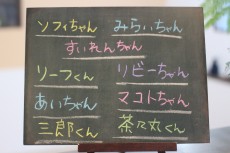 ソフィちゃん みらいちゃん
すいれんちゃん
リーフくん リビーちゃん
あいちゃん マコトちゃん
三郎くん 茶々丸くん